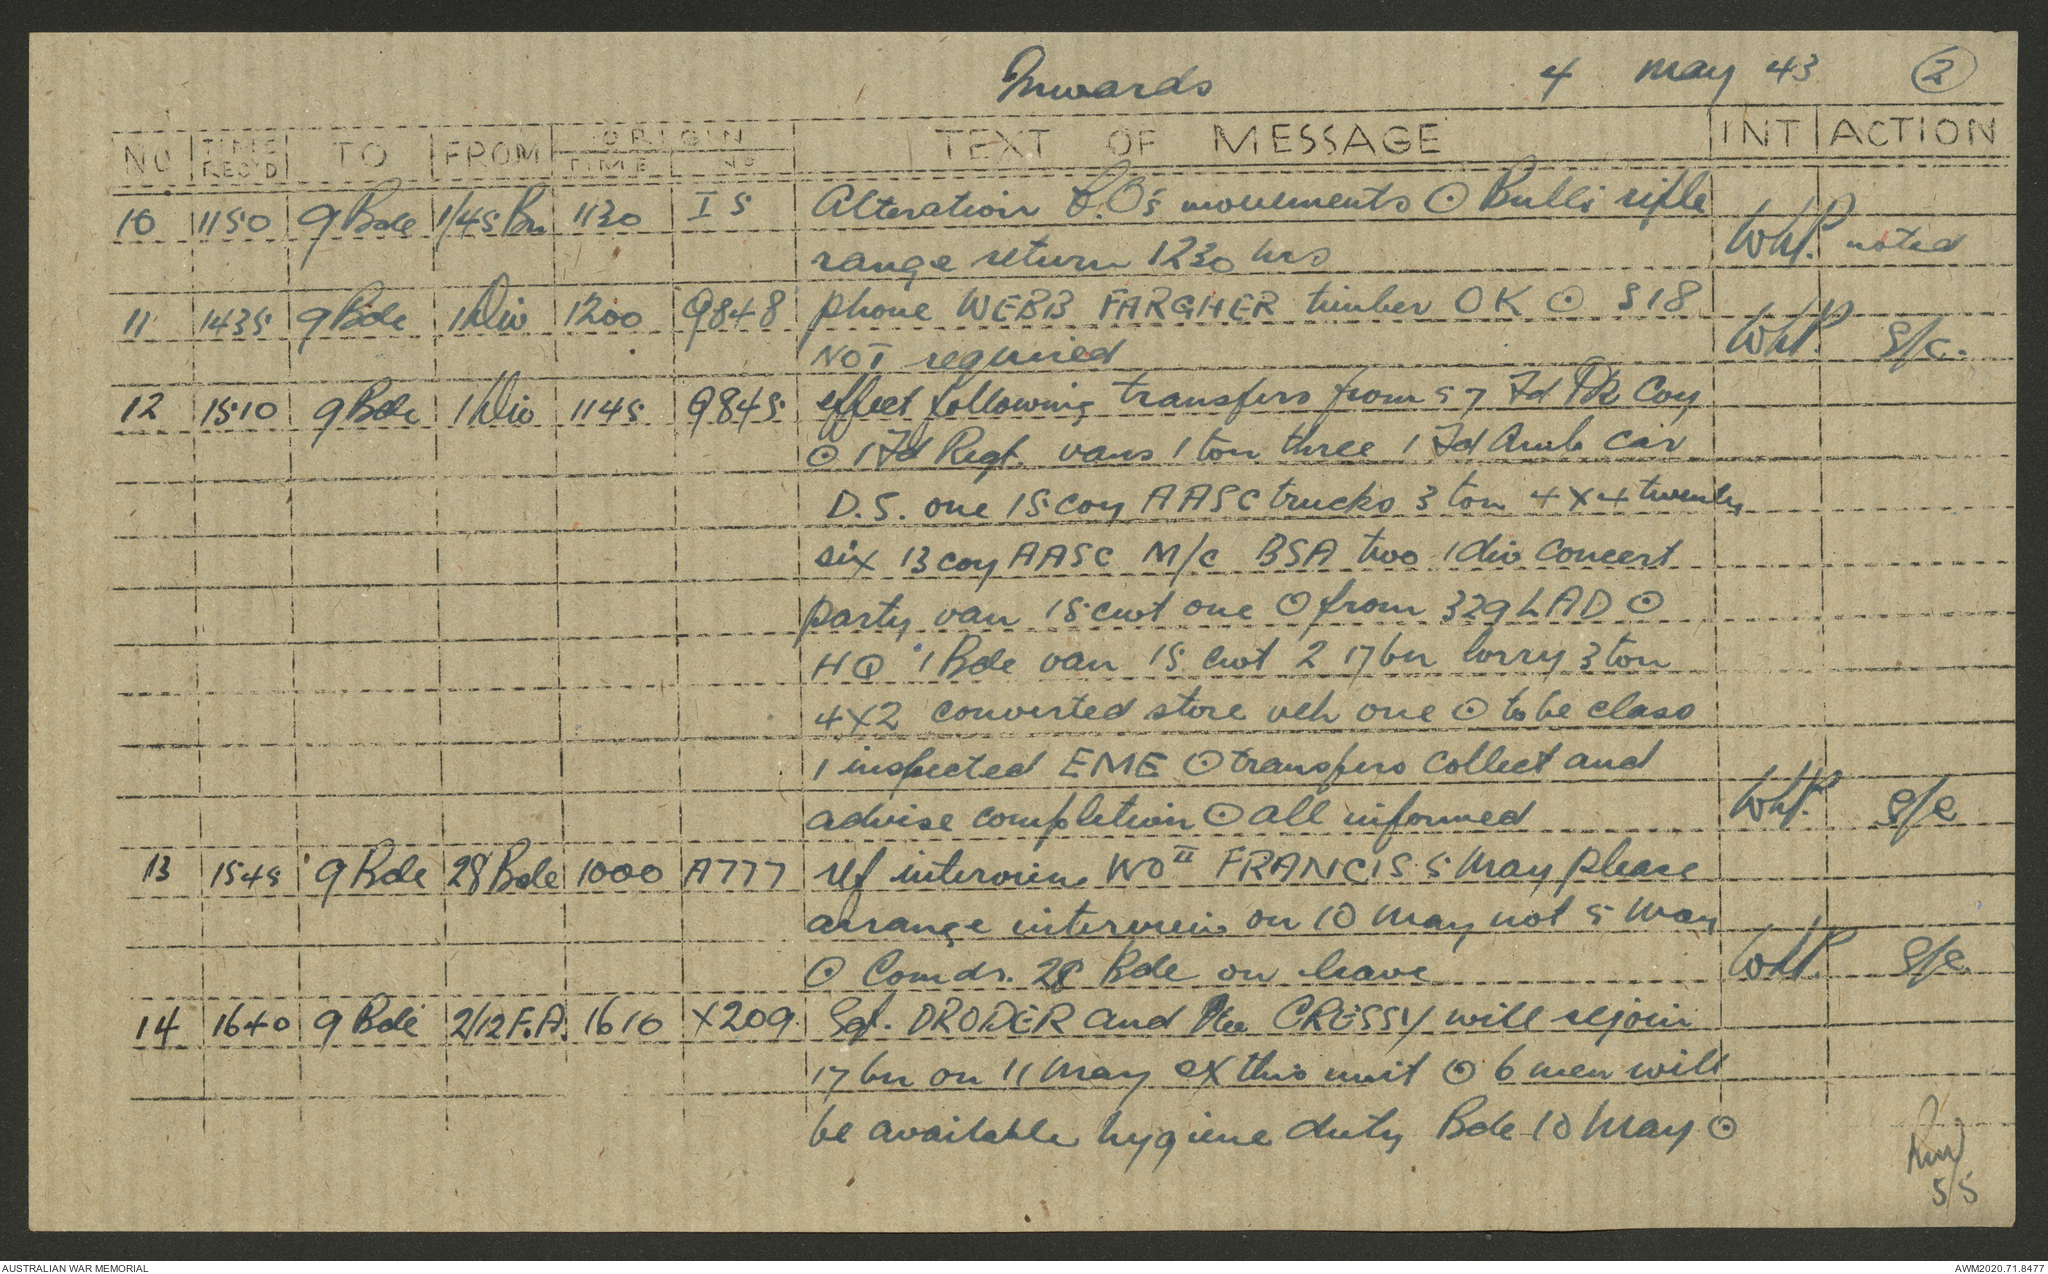 Inwards 4 May 43 2
NO TIME REC'D TO FROM ORIGIN TIME NO TEXT OF MESSAGE INT ACTION
10 1150 9 Bde 1/45 Bn 1130 I 5 Alteration C.O's movements ⊙ Bulli rifle
range return 1230 hrs WhP. noted
11 1435 9 Bde 1 Div 1200 Q848 phone WEBB FARGHER timber OK ⊙ S18
NOT required WhP. S/C.
12 1510 9 Bde 1 Div 1145 Q845 effect following transfers from 57 Fd Pk Coy
⊙ 1 Fd Regt. vans 1 ton three 1 Fd Amb car
D.S. one 15 coy AASC trucks 3 ton 4X4 twenty
six 13 coy AASC M/c BSA two 1 div concert
party van 15 cwt one ⊙ from 329 LAD ⊙
HQ 1 Bde van 15 cwt 2 17 bn lorry 3 ton
4X2 converted store veh one ⊙ to be class
1 inspected EME ⊙ transfers collect and
advise completion ⊙ all informed WhP. S/C
13 1545 9 Bde 28 Bde 1000 A777 ref interview WO II FRANCIS 5 May please
arrange interview on 10 May not 5 May
⊙ Comdr. 28 Bde on leave WhP. S/C.
14 1640 9 Bde 2/12 F.A. 1610 X209 Sgt. DRODER and Pte CRESSY will rejoin
17 bn on 11 May ex this unit ⊙ 6 men will
be available hygiene duty Bde 10 May ⊙
5/5
AUSTRALIAN WAR MEMORIAL AWM2020.71.8477